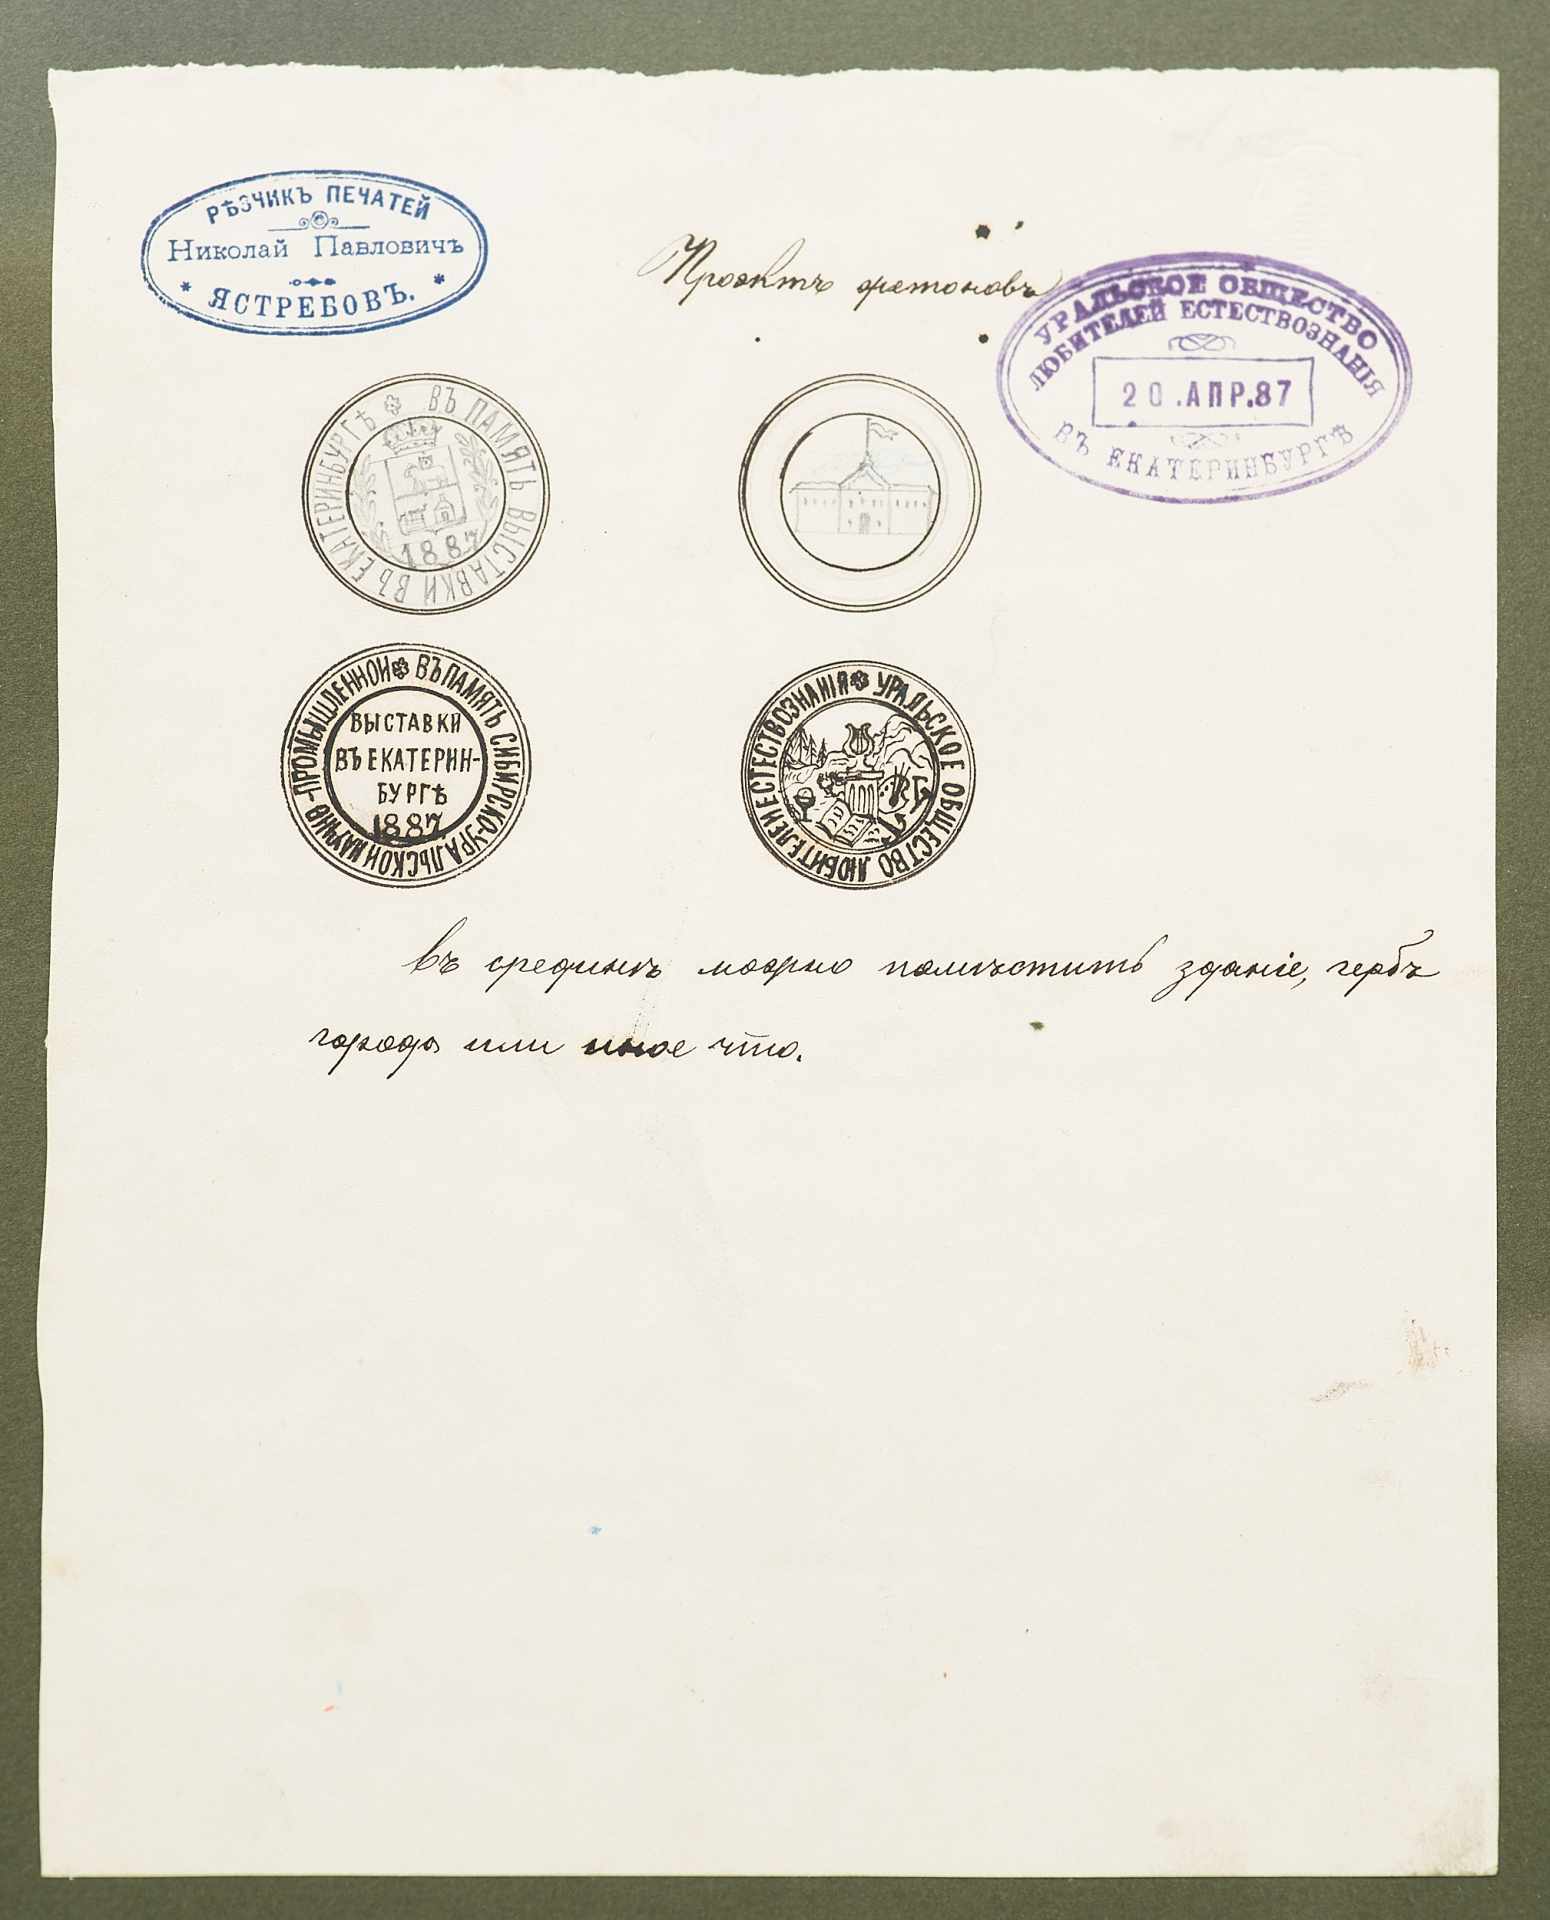 РѢЗЧИКЪ ПЕЧАТЕЙ
Николай Павловичъ
ЯСТРЕБОВЪ.
Проэктъ жетоновъ
УРАЛЬСКОЕ ОБЩЕСТВО
ЛЮБИТЕЛЕЙ ЕСТЕСТВОЗНАНІЯ
20.АПР.87
ВЪ ЕКАТЕРИНБУРГѢ
ВЪ ПАМЯТЬ ВЫСТАВКИ ВЪ ЕКАТЕРИНБУРГѢ
1887
ВЪ ПАМЯТЬ СИБИРСКО-УРАЛЬСКОЙ НАУЧНО-ПРОМЫШЛЕННОЙ
ВЫСТАВКИ
ВЪ ЕКАТЕРИН-
БУРГѢ
1887
УРАЛЬСКОЕ ОБЩЕСТВО ЛЮБИТЕЛЕЙ ЕСТЕСТВОЗНАНІЯ
въ срединѣ можно помѣстить зданіе, гербъ
города или иное что.